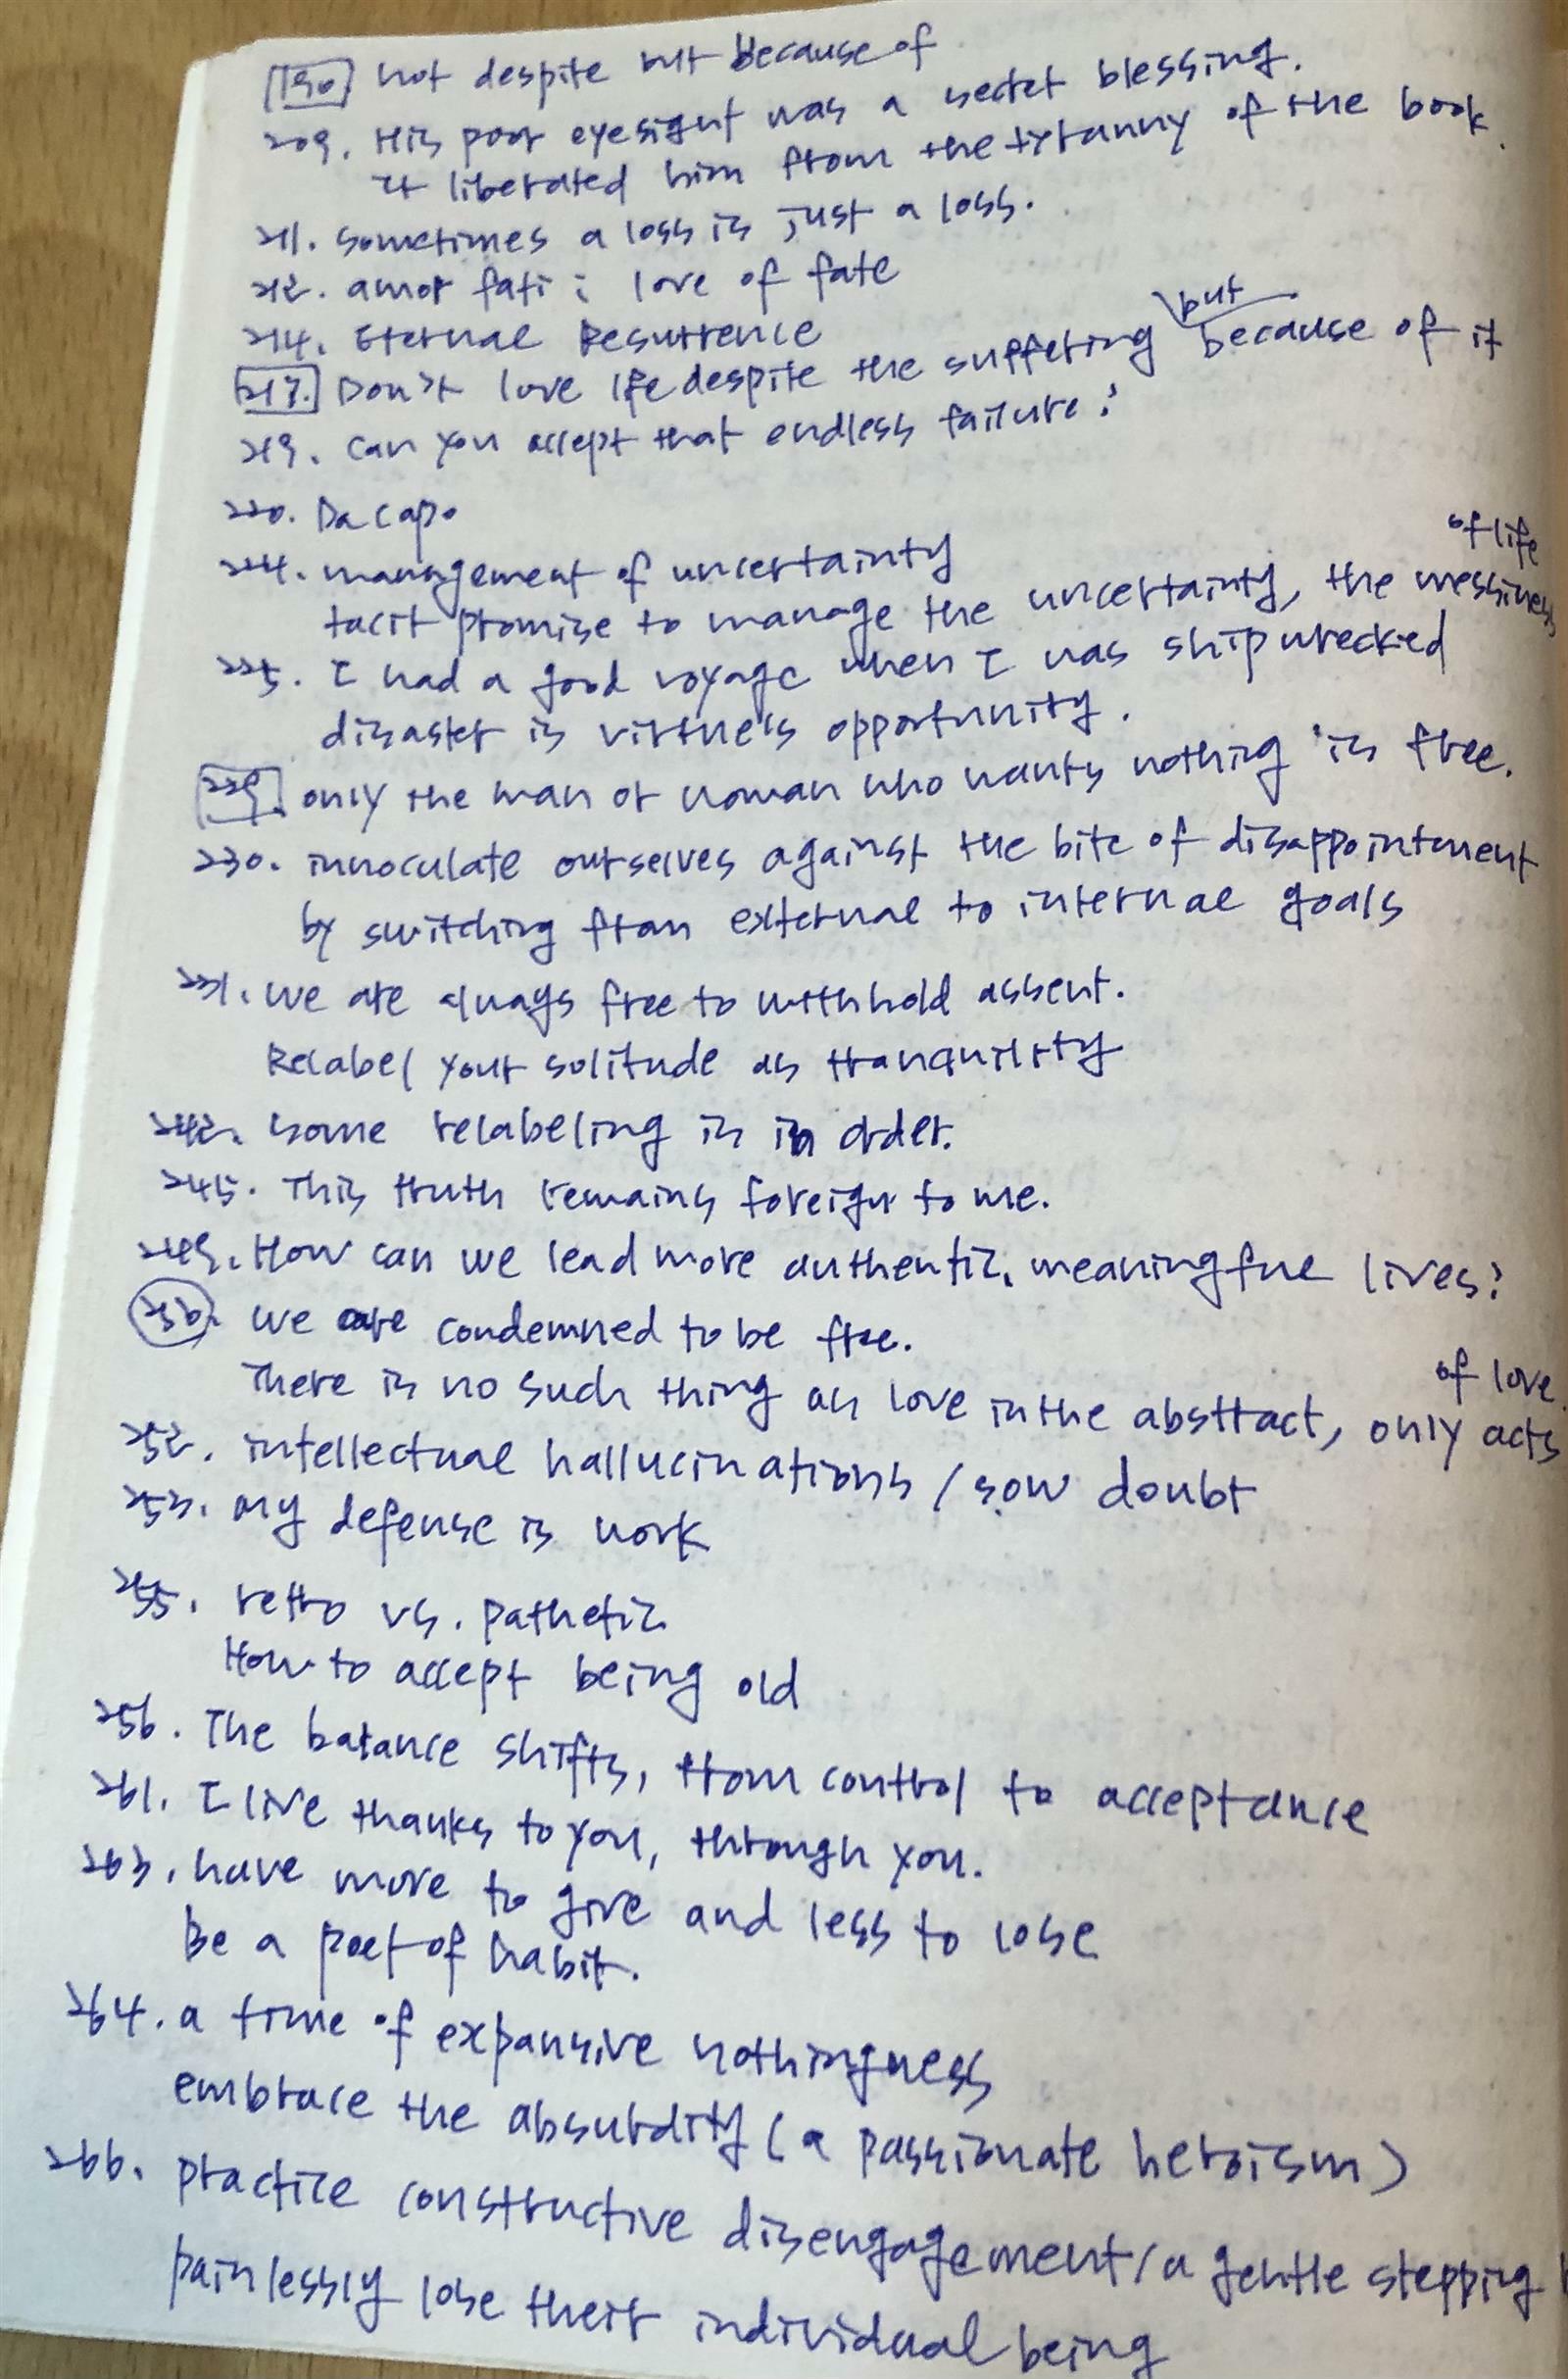 190 not despite but because of
209. His poor eyesight was a secret blessing.
It liberated him from the tyranny of the book.
211. sometimes a loss is just a loss.
212. amor fati : love of fate
214. Eternal Resurrence
but
217. Don't love life despite the suffering because of it
219. can you accept that endless failure?
220. Da capo
of life
224. management of uncertainty
tacit promise to manage the uncertainty, the messiness
225. I had a good voyage when I was shipwrecked
disaster is virtue's opportunity.
229. only the man or woman who wants nothing is free.
230. innoculate ourselves against the bite of disappointment
by switching from external to internal goals
231. we are always free to withhold assent.
Relabel your solitude as tranquility
242. some relabeling is in order.
245. This truth remains foreign to me.
249. How can we lead more authentic, meaningful lives?
250. we are condemned to be free.
of love.
There is no such thing as love in the abstract, only acts
252. intellectual hallucinations / sow doubt
253. my defense is work
255. retro vs. pathetic
How to accept being old
256. The balance shifts, from control to acceptance
261. I live thanks to you, through you.
263. have more to give and less to lose
Be a poet of habit.
264. a time of expansive nothingness
embrace the absurdity (a passionate heroism)
266. practice constructive disengagement / a gentle stepping
painlessly lose their individual being